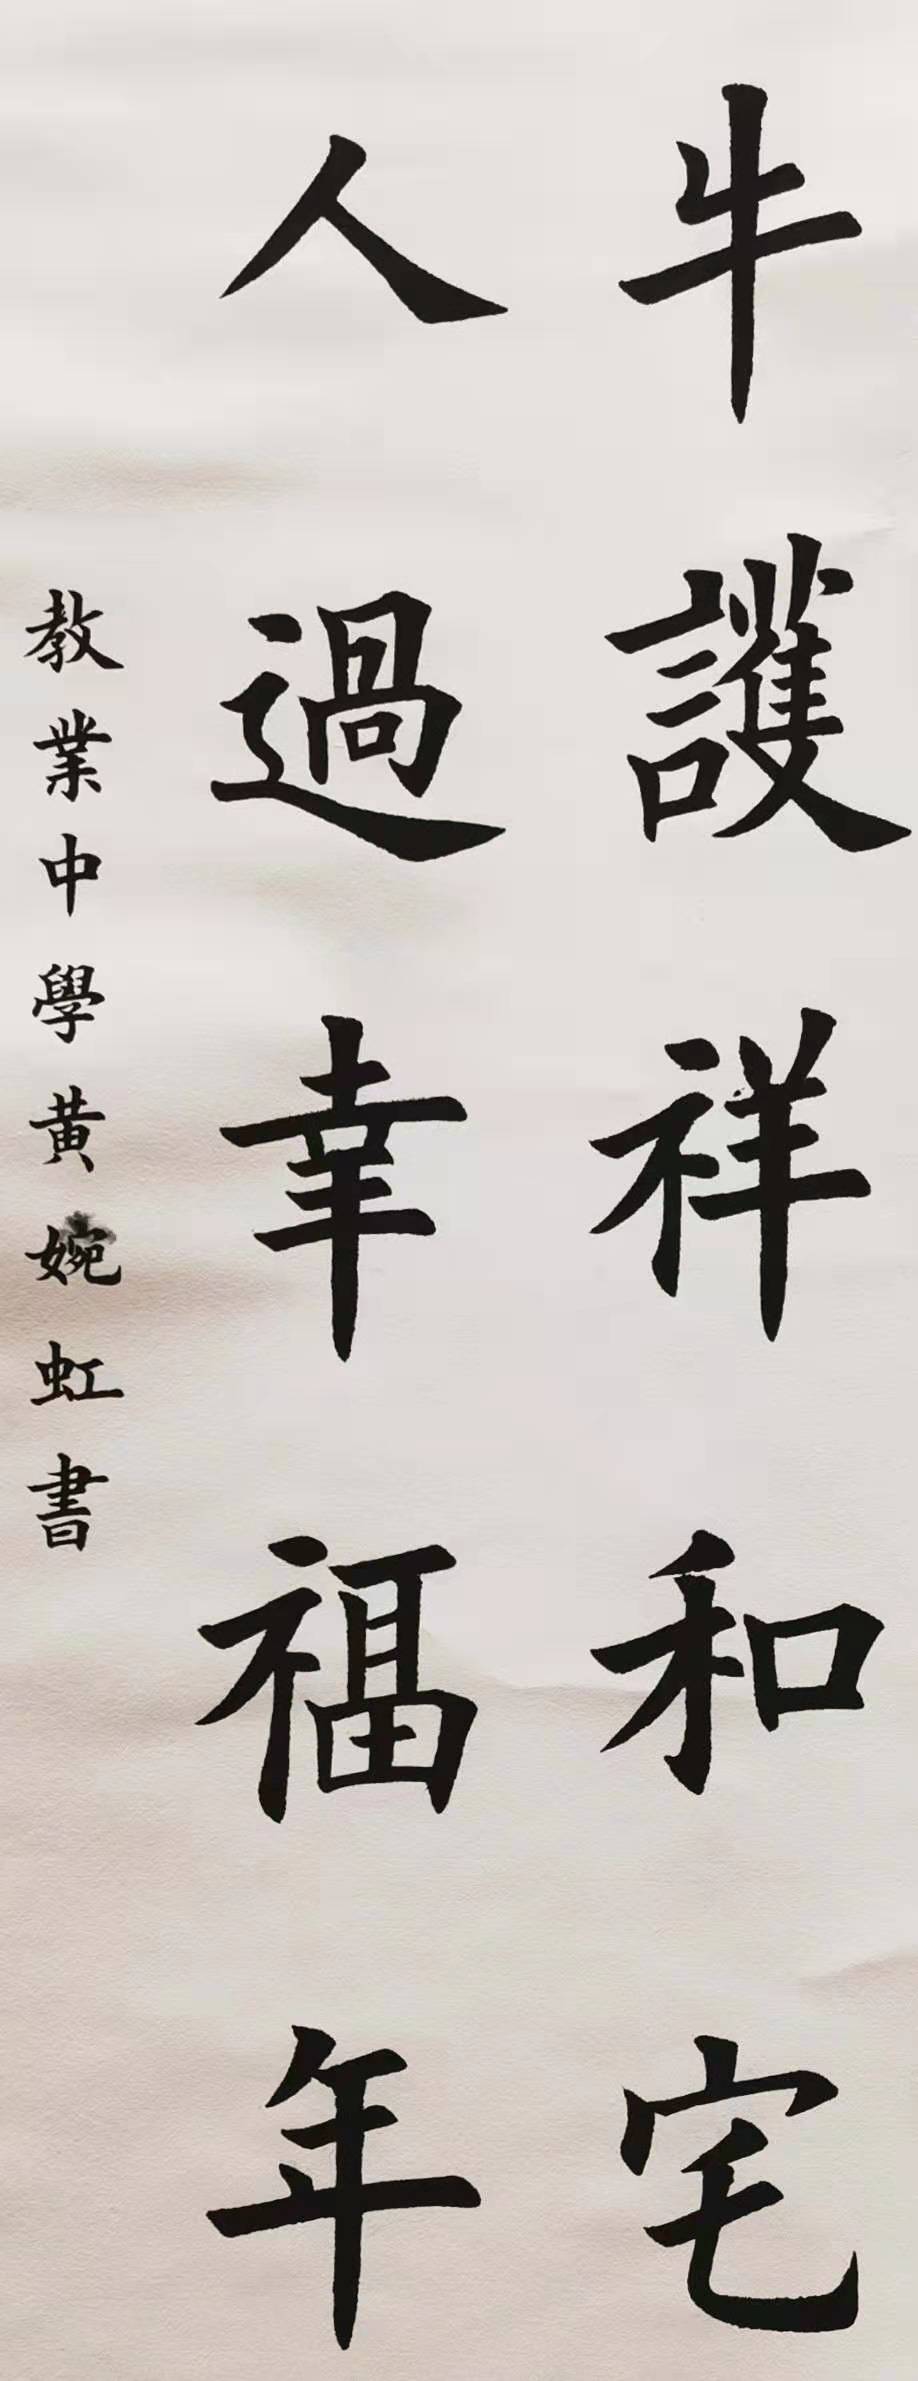 牛護祥和宅
人過幸福年
教業中學黃婉虹書